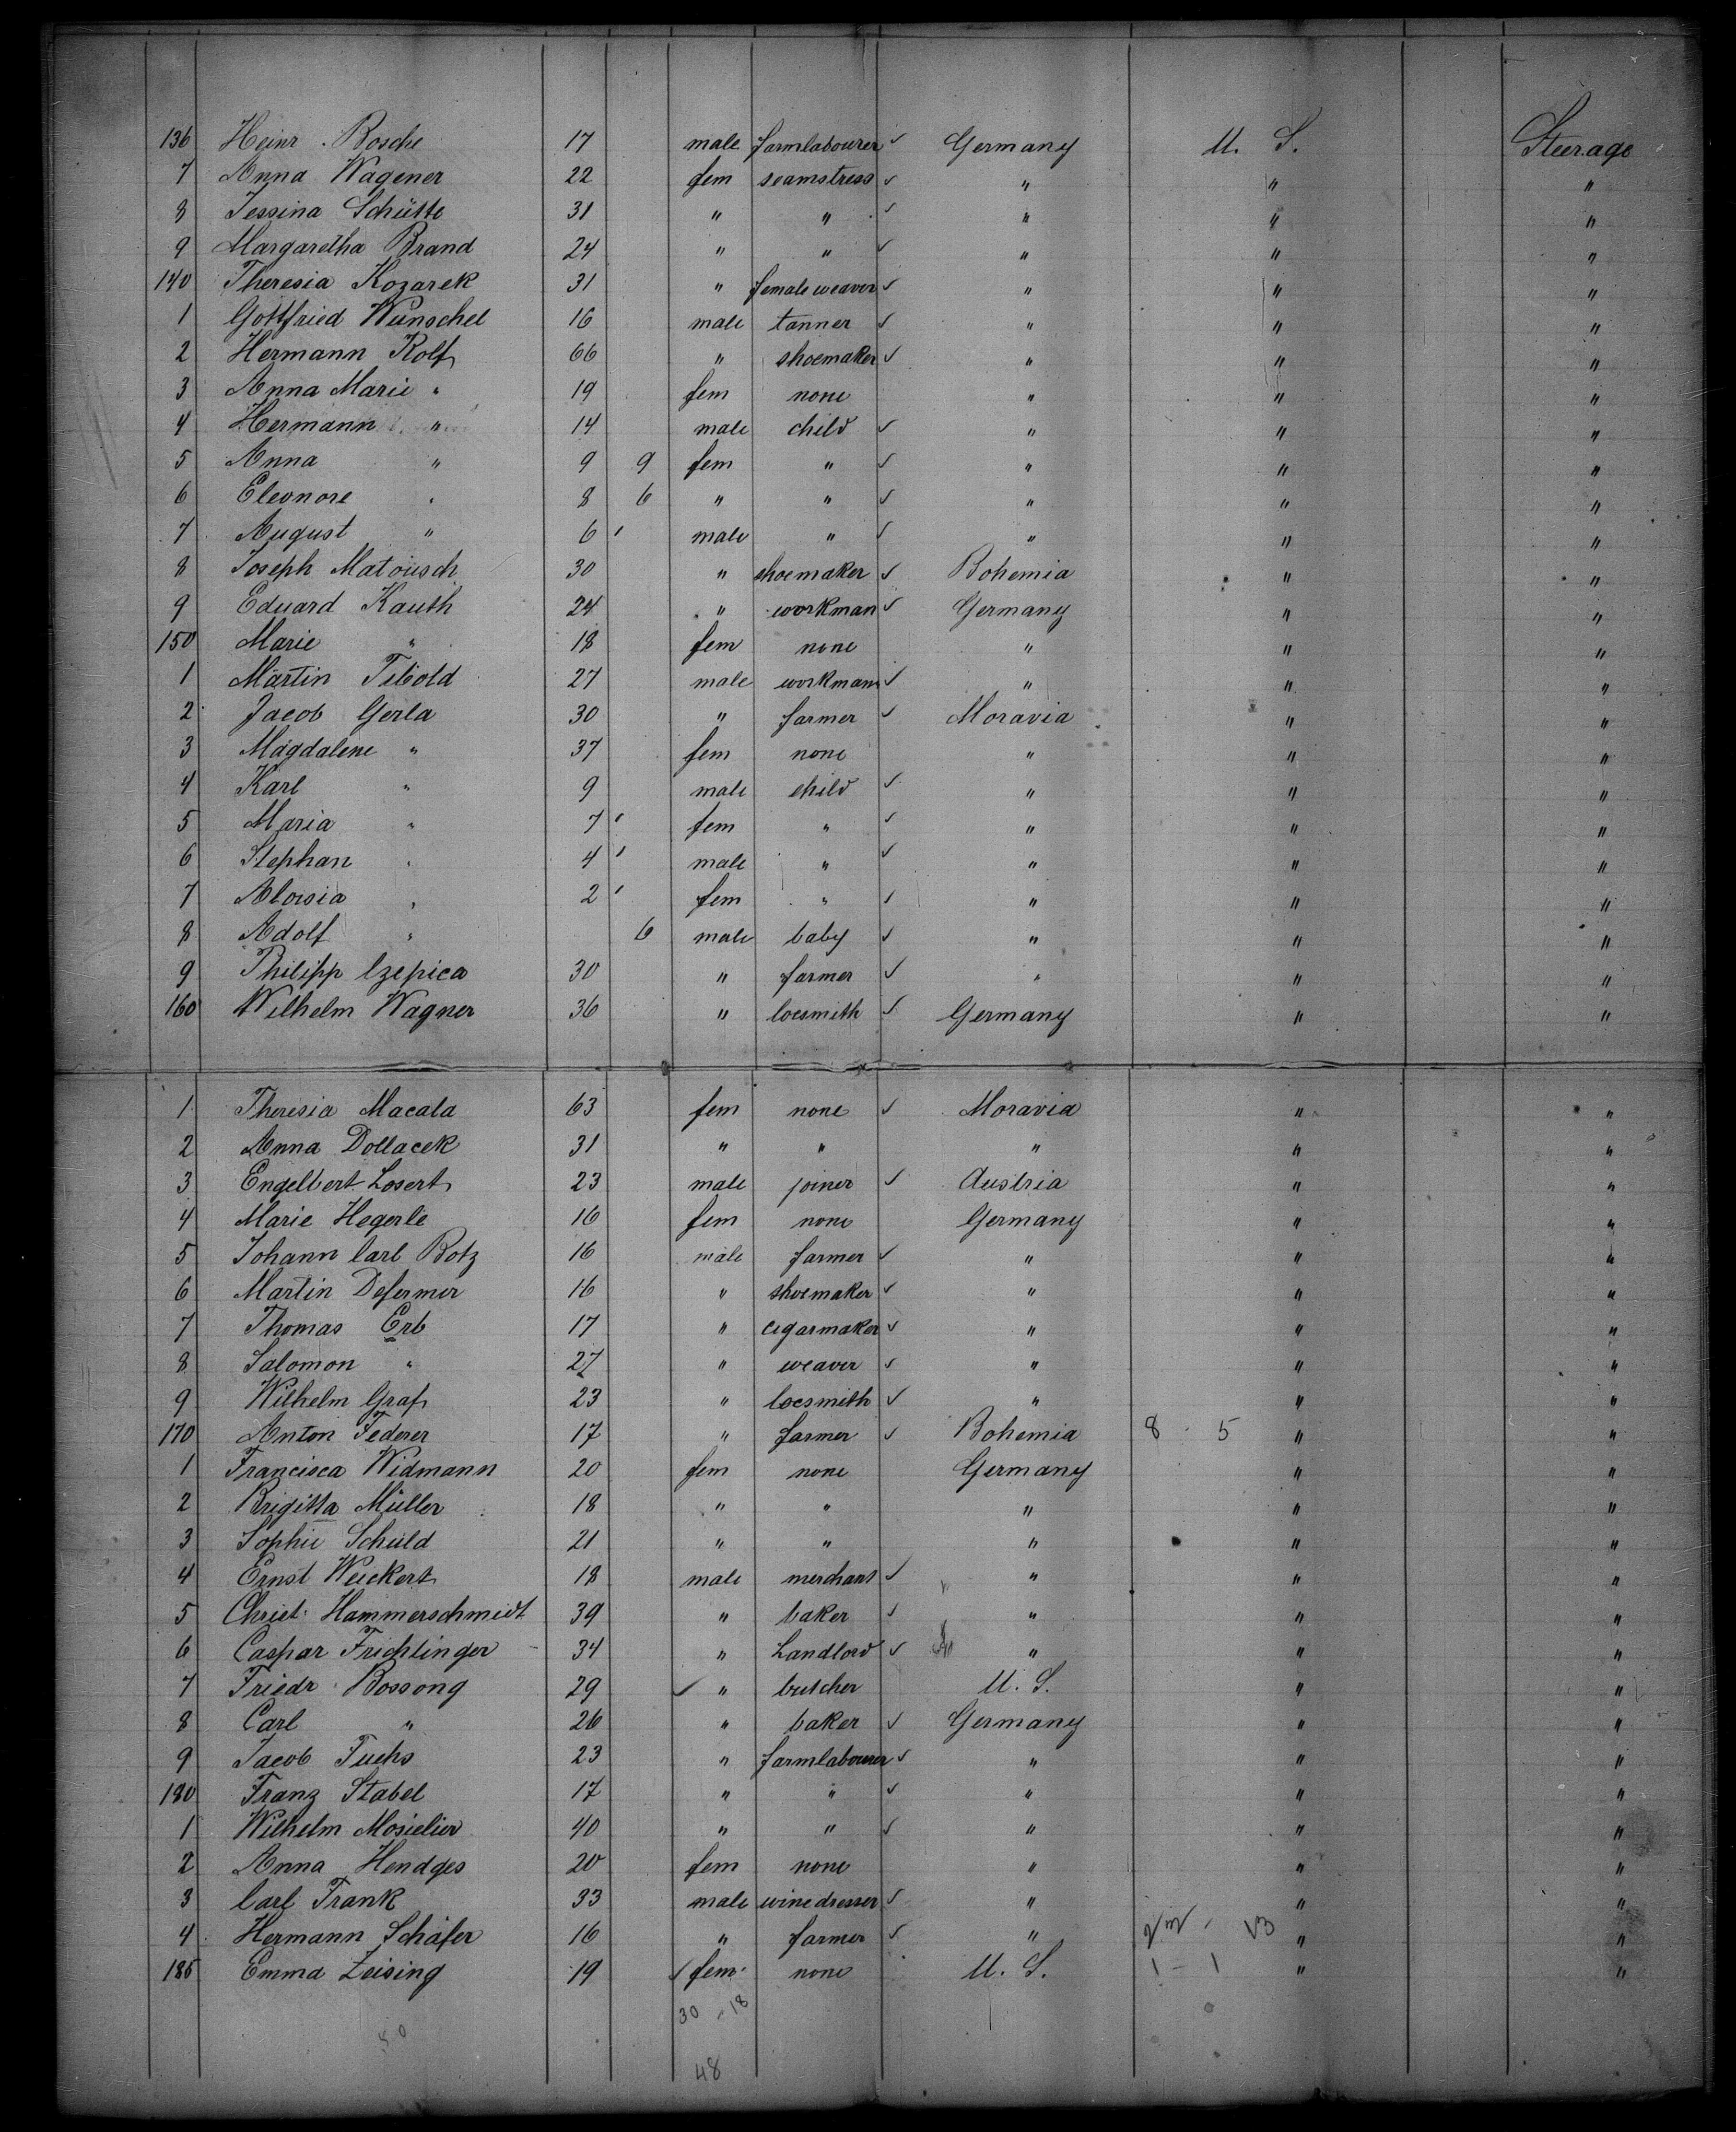 136 Heinr. Bosche 17 male farmlabourer ✓ Germany U. S. Steerage
7 Anna Wagener 22 fem seamstress ✓ " " "
8 Jessina Schütte 31 " " ✓ " " "
9 Margaretha Brand 24 " " ✓ " " "
140 Theresia Kozarek 31 " female weaver ✓ " " "
1 Gottfried Wunschel 16 male tanner ✓ " " "
2 Hermann Rolf 66 " shoemaker ✓ " " "
3 Anna Marie " 19 fem none " " "
4 Hermann " 14 male child ✓ " " "
5 Anna " 9 9 fem " ✓ " " "
6 Eleonore " 8 6 " " ✓ " " "
7 August " 6 male " ✓ " " "
8 Joseph Matousch 30 " shoemaker ✓ Bohemia " "
9 Eduard Kauth 24 " workman ✓ Germany " "
150 Marie " 18 fem none " " "
1 Martin Tibold 27 male workman ✓ " " "
2 Jacob Gerla 30 " farmer ✓ Moravia " "
3 Magdalene " 37 fem none " " "
4 Karl " 9 male child ✓ " " "
5 Maria " 7 fem " ✓ " " "
6 Stephan " 4 male " ✓ " " "
7 Aloisia " 2 fem " ✓ " " "
8 Adolf " 6 male baby ✓ " " "
9 Philipp Czepica 30 " farmer ✓ " " "
160 Wilhelm Wagner 36 " locsmith ✓ Germany " "
1 Theresia Macala 63 fem none ✓ Moravia " "
2 Anna Dollacek 31 " " " " "
3 Engelbert Losert 23 male joiner ✓ Austria " "
4 Marie Hegerle 16 fem none Germany " "
5 Johann Carl Botz 16 male farmer ✓ " " "
6 Martin Defermer 16 " shoemaker ✓ " " "
7 Thomas Erb 17 " cigarmaker ✓ " " "
8 Salomon " 27 " weaver ✓ " " "
9 Wilhelm Graf 23 " locsmith ✓ " " "
170 Anton Federer 17 " farmer ✓ Bohemia 8 5 " "
1 Francisca Widmann 20 fem none Germany " "
2 Brigitta Müller 18 " " " " "
3 Sophie Schuld 21 " " " " "
4 Ernst Weickert 18 male merchant ✓ " " "
5 Christ. Hammerschmidt 39 " baker ✓ " " "
6 Caspar Frichlinger 34 " Landlord ✓ " " "
7 Friedr Bossong 29 ✓ " butcher U. S. " "
8 Carl " 26 " baker ✓ Germany " "
9 Jacob Fuchs 23 " farmlabourer ✓ " " "
180 Franz Stabel 17 " " ✓ " " "
1 Wilhelm Mosielier 40 " " ✓ " " "
2 Anna Hendges 20 fem none " " "
3 Carl Frank 33 male winedresser ✓ " " "
4 Hermann Schäfer 16 " farmer ✓ " 13 " "
185 Emma Zeising 19 ✓ fem. none U. S. 1 - 1 " "
30 18
50
48